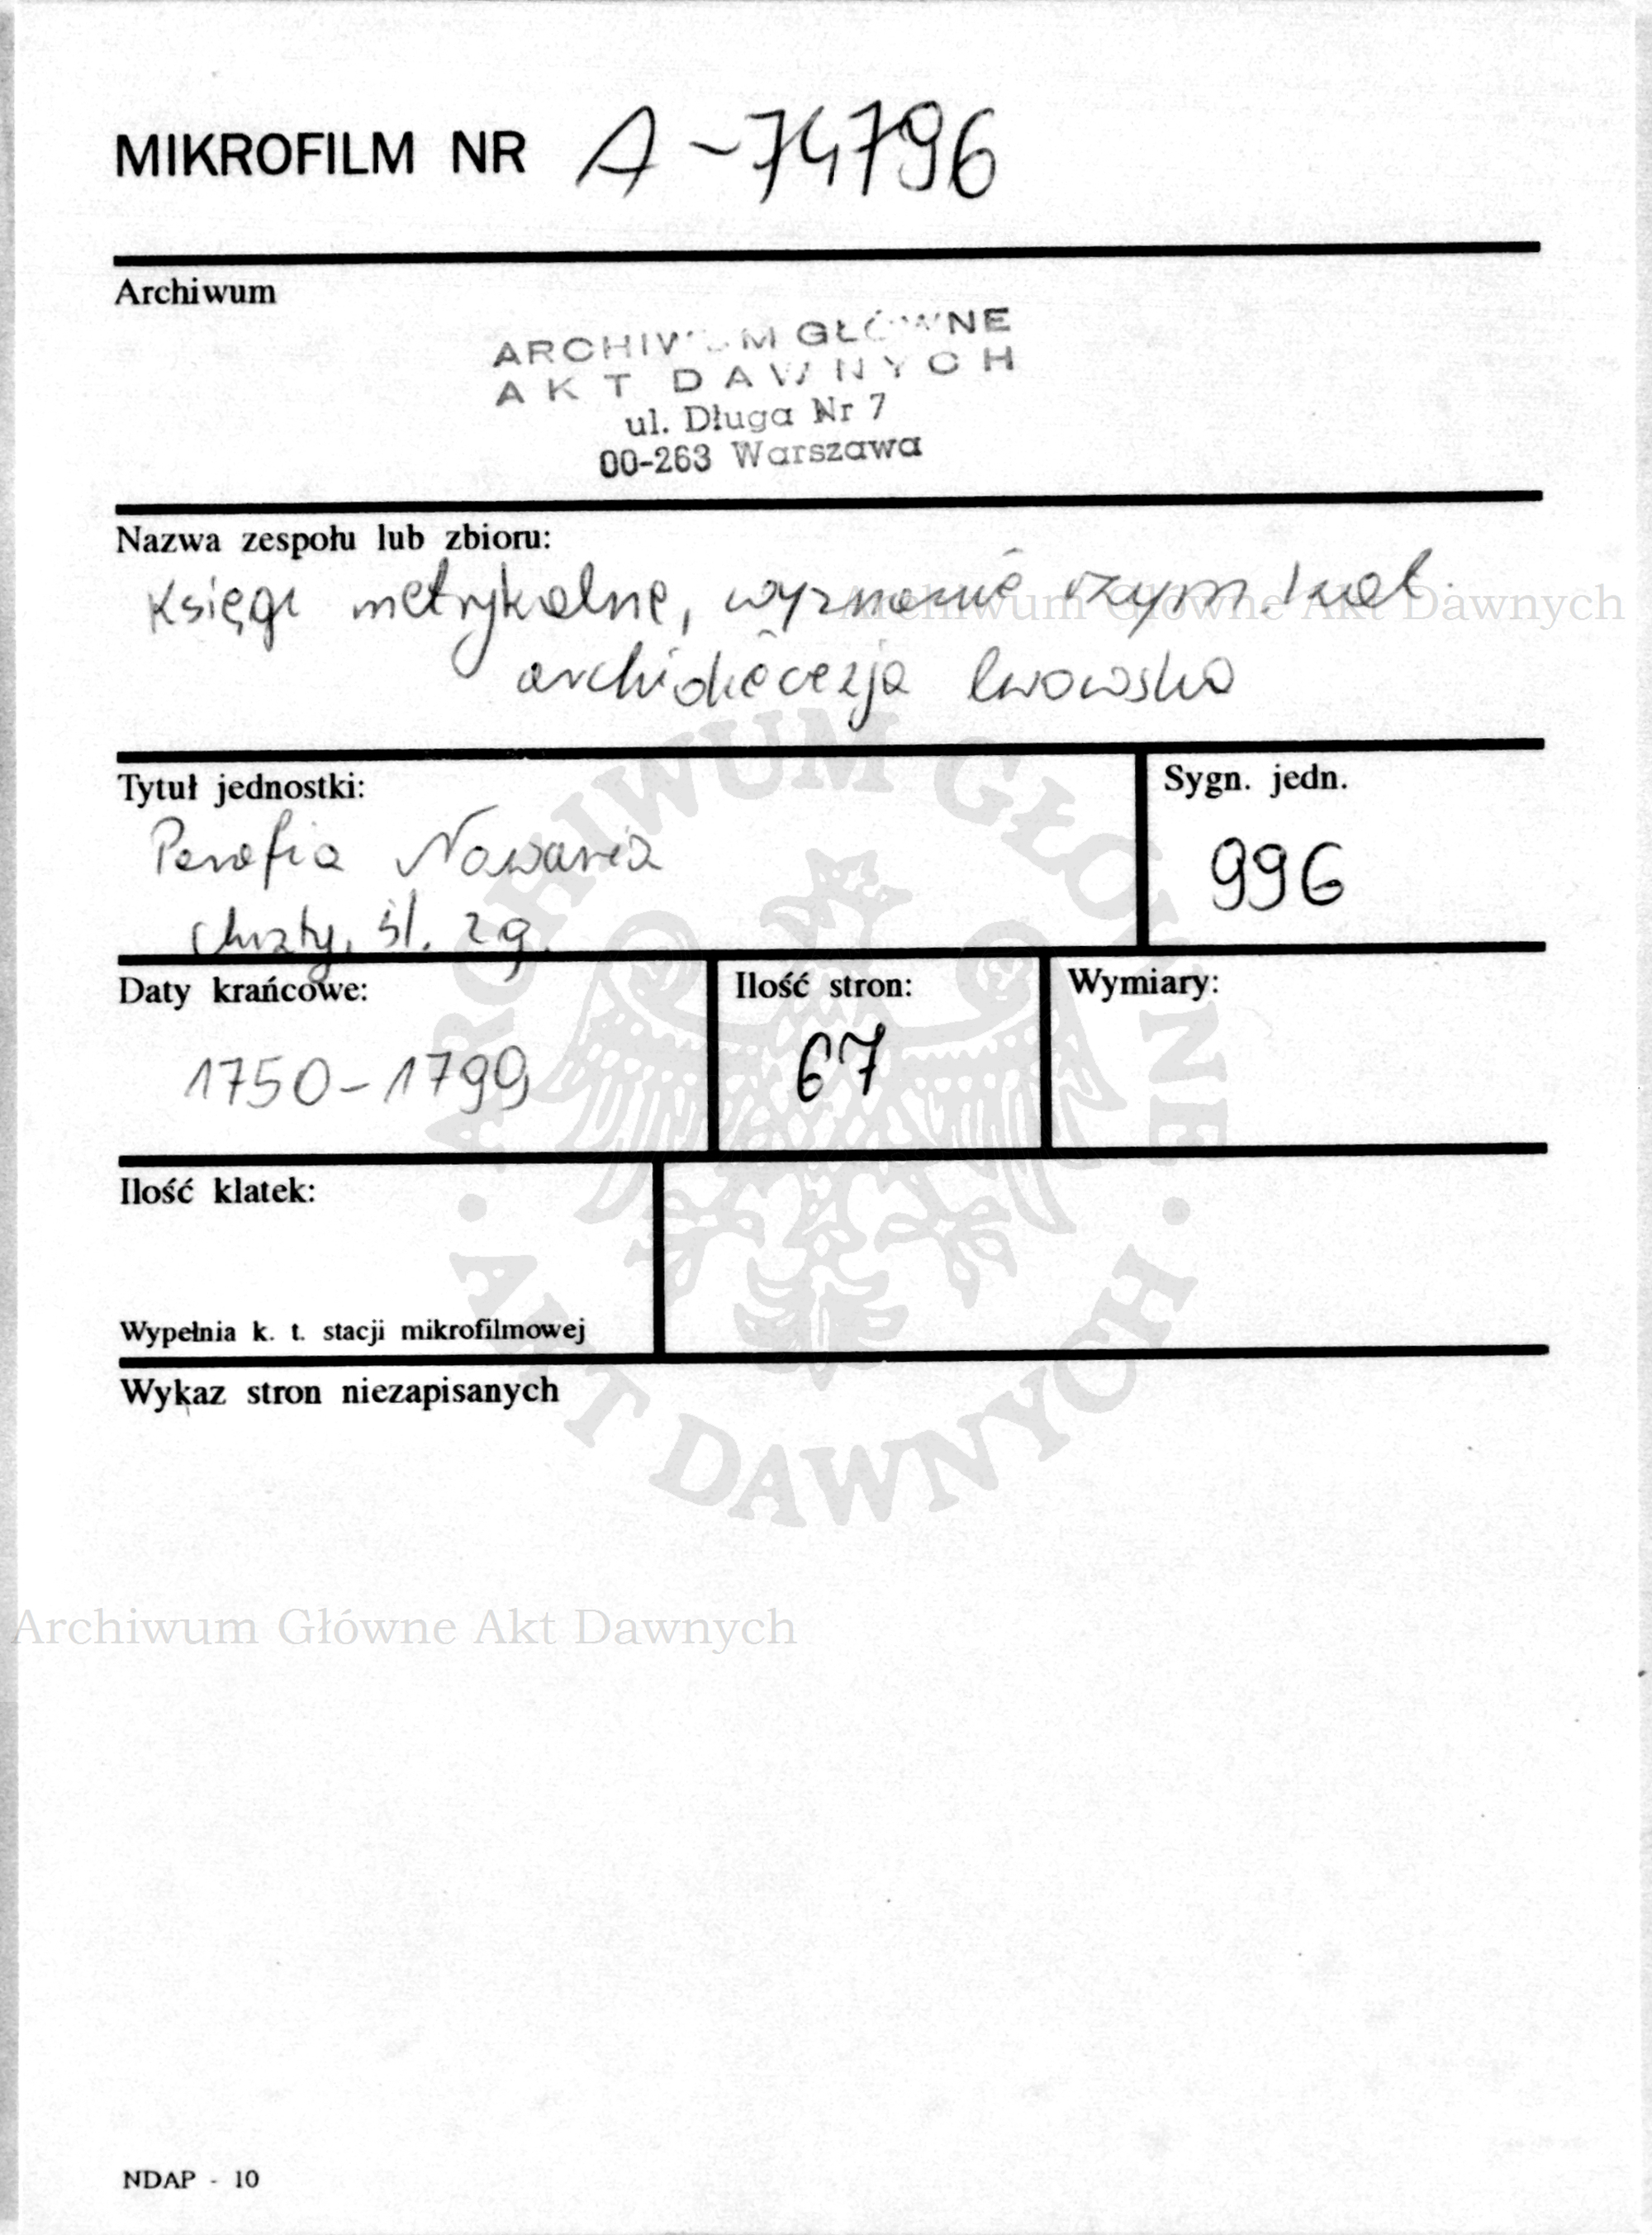 MIKROFILM NR A-74796
Archiwum
ARCHIWUM GŁÓWNE
AKT DAWNYCH
ul. Długa Nr 7
00-263 Warszawa
Nazwa zespołu lub zbioru:
Księgi metrykalne, wyznanie rzym. kat.
Archiwum Główne Akt Dawnych
archidiecezja lwowska
Tytuł jednostki:
Sygn. jedn.
Parafia Nawaria
996
chrzty, śl. zg.
Daty krańcowe:
Ilość stron:
Wymiary:
1750-1799
67
Ilość klatek:
Wypełnia k. t. stacji mikrofilmowej
Wykaz stron niezapisanych
ARCHIWUM GŁÓWNE
AKT DAWNYCH
Archiwum Główne Akt Dawnych
NDAP - 10